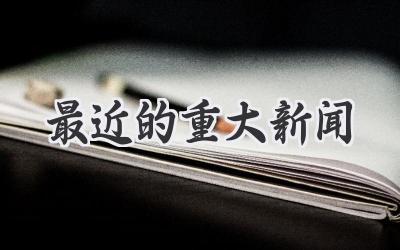 最近的重大新闻